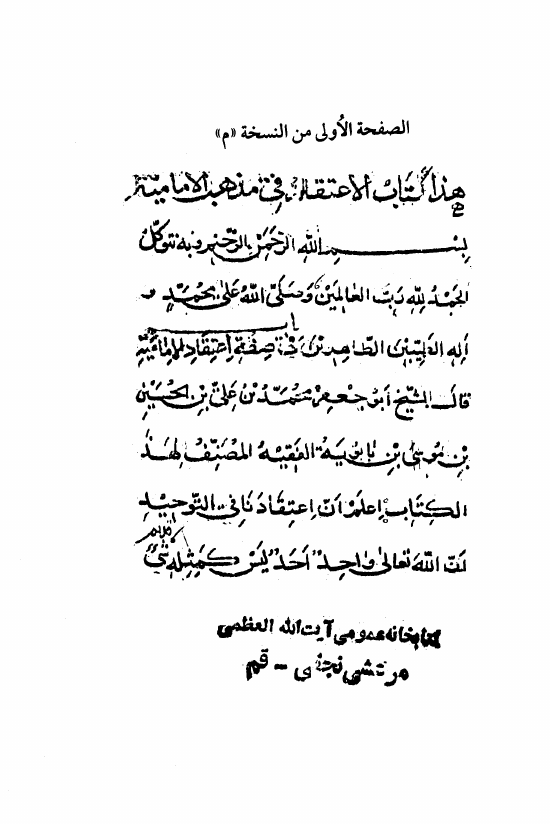 الصفحة الأولى من النسخة «م»
هذا كتاب الاعتقاد في مذهب الامامية
بسم الله الرحمن الرحيم وبه نتوكل
الحمد لله رب العالمين وصلى الله على محمد و
اله الطيبين الطاهرين باب في صفة اعتقاد الامامية
قال الشيخ ابو جعفر محمد بن علي بن الحسين
بن موسى بن بابويه الفقيه المصنف لهذا
الكتاب اعلم ان اعتقادنا في التوحيد
ان الله تعالى واحد احد ليس كمثله شئ
قديم
كتابخانه عمومى آيت الله العظمى
مرعشى نجفى - قم